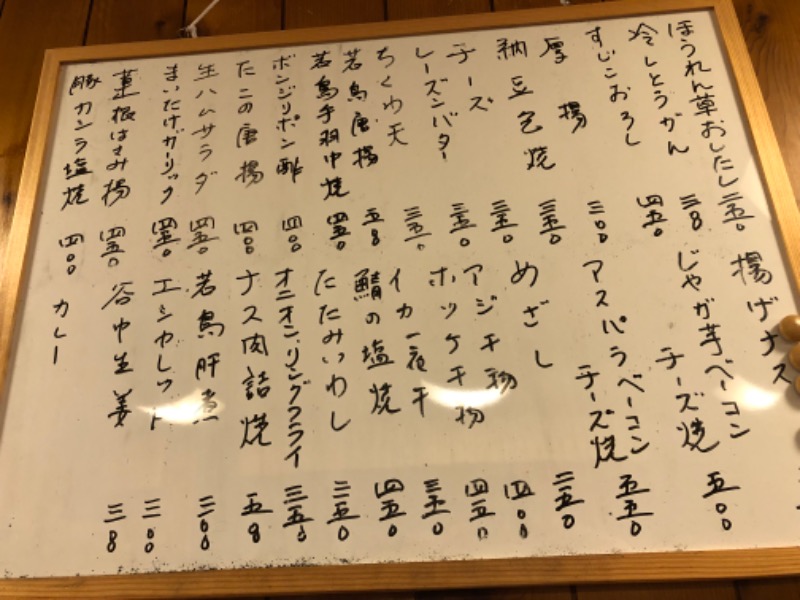 ほうれん草おしたし 三五〇
冷しとうかん 三〇〇
すじこおろし 四五〇
厚揚 三〇〇
納豆包焼 三五〇
チーズ 三五〇
レーズンバター 三五〇
ちくわ天 三五〇
若鳥唐揚 五〇〇
若鳥手羽中焼 四五〇
ボンジリポン酢 四〇〇
たこの唐揚 四〇〇
生ハムサラダ 四五〇
まいたけガーリック 四五〇
蓮根はさみ揚 四五〇
豚カシラ塩焼 四〇〇
揚げナス
じゃが芋ベーコン
チーズ焼 五〇〇
アスパラベーコン
チーズ焼 五五〇
めざし 三五〇
アジ干物 四〇〇
ホッケ干物 四五〇
イカ一夜干 三五〇
鯖の塩焼 四五〇
たたみいわし 三五〇
オニオンリングフライ 三五〇
ナス肉詰焼 五〇〇
若鳥肝煮 三〇〇
エシャレット 三〇〇
谷中生姜 三〇〇
カレー